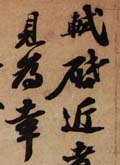 軾啓近者
見為幸